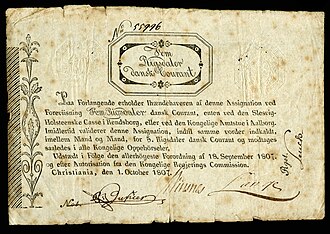 No 55996
Fem
Rigsdaler
dansk Courant.
Paa Forlangende erholder Ihændehaveren af denne Assignation ved
Forevisning Fem Rigsdaler dansk Courant, enten ved den Slesvig-
Holsteenske Casse i Rendsborg, eller ved den Kongelige Amtstue i Aalborg.
Imidlertid validerer denne Assignation, indtil samme vorder indkaldt,
imellem Mand og Mand, for 5. Rigsdaler dansk Courant og modtages
saaledes i alle Kongelige Oppebørseler.
Udstædt i Følge den allerhøieste Forordning af 18. September 1807.
og efter Autorisation den Kongelige Regjerings Commission.
Christiania, den 1. October 1807.